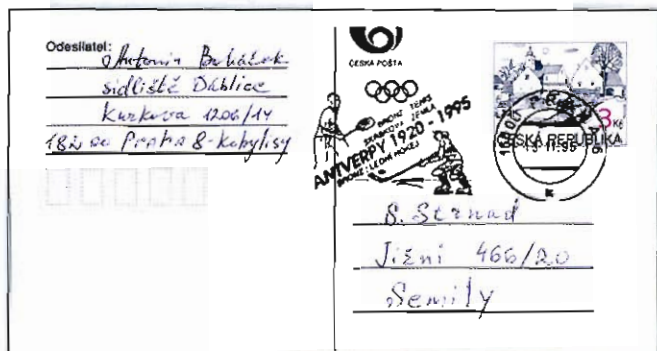 Odesílatel:
Antonín
sídliště Ďáblice
Kurkova 1206/14
182 00 Praha 8-Kobylisy
ČESKÁ POŠTA
BRONZ TENIS
ANTVERPY 1920-1995
BRONZ LEDNÍ HOKEJ
3 Kč
ČESKÁ REPUBLIKA
S. Strnad
Jižní 466/20
Semily